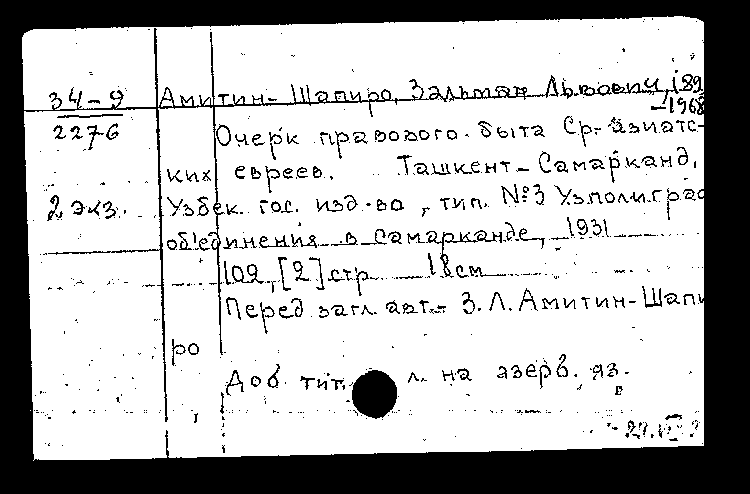 34-9
2276
2 экз.
Амитин-Шапиро, Зальман Львович, 189
-1968
Очерк правового быта Ср-азиатс-
ких евреев. Ташкент-Самарканд,
Узбек. гос. изд-во, тип. №3 Узполиграф
объединения в Самарканде, 1931
109, [2] стр 18 см
Перед загл. авт.- З. Л. Амитин-Шапи
ро
Доб. тит. л. на азерб. яз.